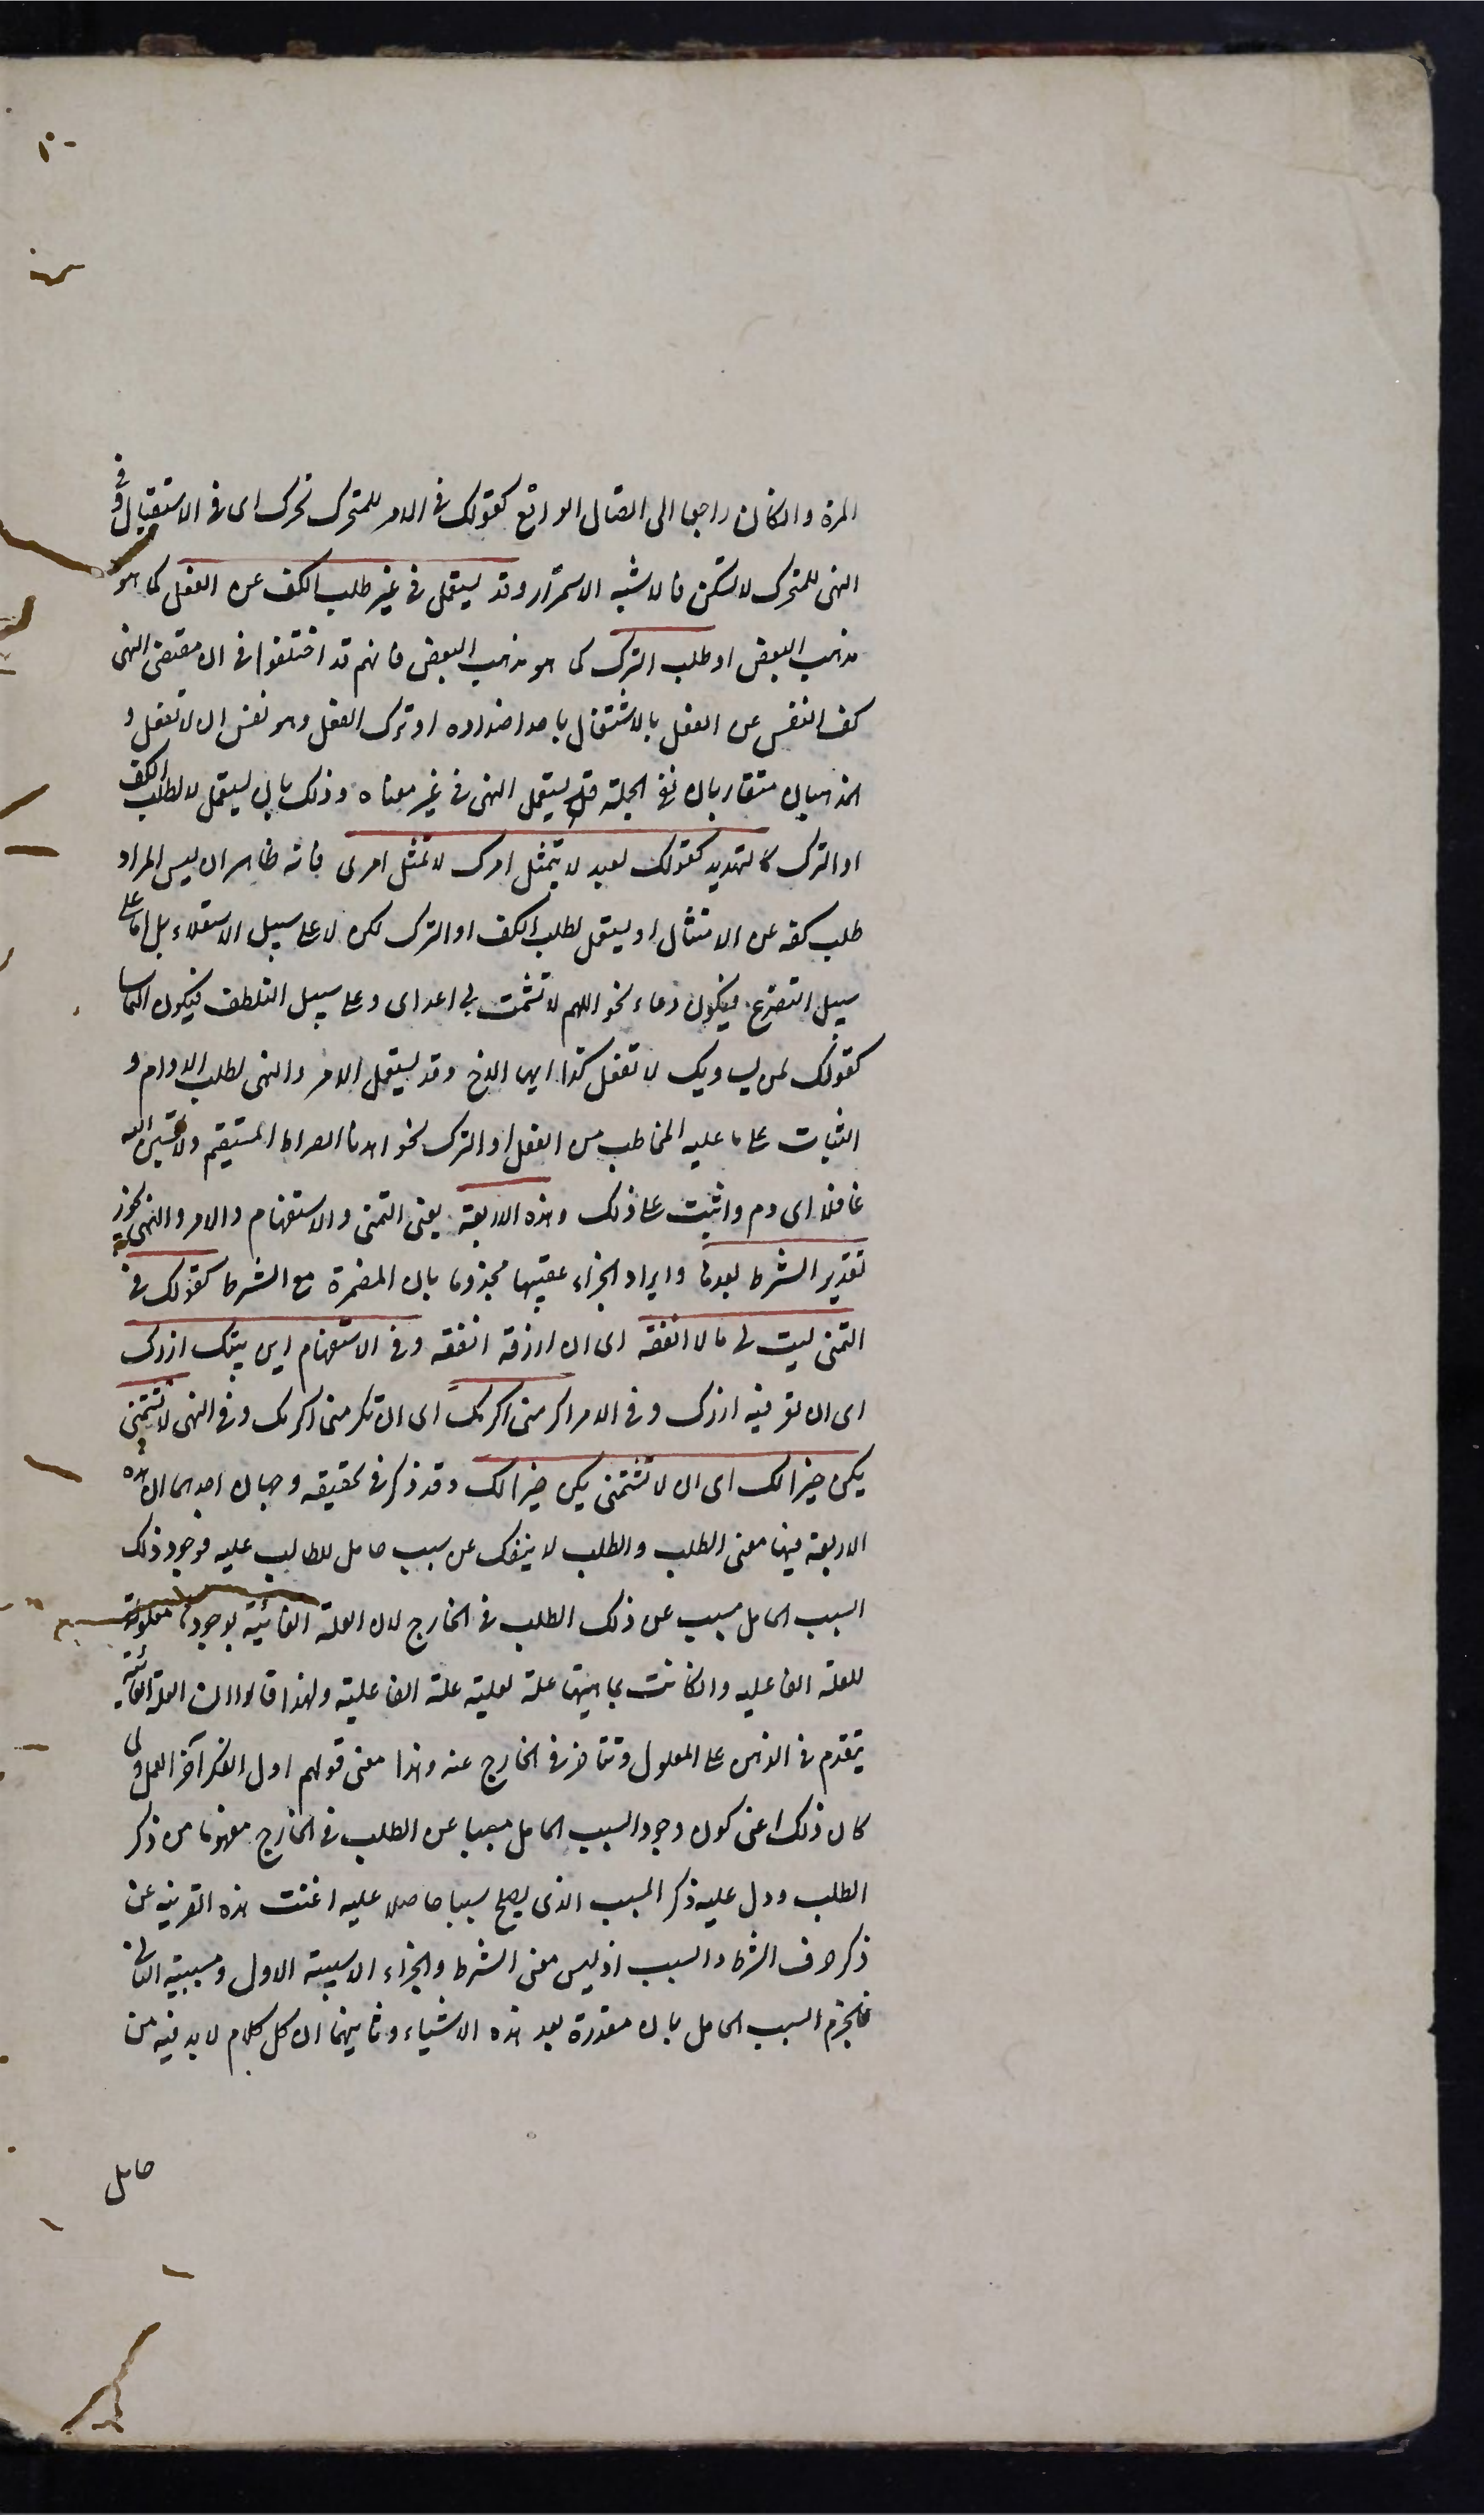 المرة وانكان راجعا الى اتصال الواقع كقولك فى الامر للمتحرك تحرك اى فى الاستقبال وفى
النهى للمتحرك لا تسكن فالاشبه الاستمرار وقد يستعمل فى غير طلب الكف عن الفعل كما هو
مذهب البعض او طلب الترك كما هو مذهب البعض فانهم قد اختلفوا فى ان مقتضى النهى
كف النفس عن الفعل بالاشتغال باحد اضداده او ترك الفعل وهو نفس ان لا تفعل و
المذهبان متقاربان نفى الجملة قد يستعمل النهى فى غير معناه وذلك بان يستعمل لا لطلب الكف
او الترك كالتهديد كقولك لعبد لا يتمثل امرك لا تمتثل امرى فانه ظاهر ان ليس المراد
طلب كفه عن الامتثال او يستعمل لطلب الكف او الترك لكن لا على سبيل الاستعلاء بل اما على
سبيل التضرع فيكون دعاء نحو اللهم لا تشمت بى اعدائى وعلى سبيل التلطف فيكون التماسا
كقولك لمن يساويك لا تفعل كذا ايها الاخ وقد يستعمل الامر والنهى لطلب الدوام و
الثبات على ما عليه المخاطب من الفعل او الترك نحو اهدنا الصراط المستقيم ولا تحسبن الله
غافلا اى دم واثبت على ذلك وهذه الاربعة يعنى التمنى والاستفهام والامر والنهى يجوز
تقدير الشرط بعدها وايراد الجزاء عقيبها مجزوما بان المضمرة مع الشرط كقولك فى
التمنى ليت لى مالا انفقه اى ان ارزقه انفقه وفى الاستفهام اين بيتك ازرك
اى ان تعرفنيه ازرك وفى الامر اكرمنى اكرمك اى ان تكرمنى اكرمك وفى النهى لا تشتمنى
يكن خيرا لك اى ان لا تشتمنى يكن خيرا لك وقد ذكر فى تحقيقه وجهان احدهما ان هذه
الاربعة فيها معنى الطلب والطلب لا ينفك عن سبب حامل للطالب عليه فوجود ذلك
السبب الحامل مسبب عن ذلك الطلب فى الخارج لان العلة الغائية بوجودها معلولة
للعلة الفاعليه وانكانت بماهيتها علة لعلية علة الفاعلية ولهذا قالوا ان العلة الغائية
يتقدم فى الذهن على المعلول وتتاخر فى الخارج عنه وهذا معنى قولهم اول الفكر آخر العمل ولما
كان ذلك اعنى كون وجود السبب الحامل مسببا عن الطلب فى الخارج مفهوما من ذكر
الطلب ودل عليه ذكر المسبب الذى يصلح سببا حاملا عليه اغنت هذه القرينه عن
ذكر حرف الشرط والسبب اذ ليس معنى الشرط والجزاء الا سببية الاول ومسببية الثانى
فانجزم السبب الحامل بان مقدرة بعد هذه الاشياء وثانيهما ان كل كلام لا بد فيه من
حامل